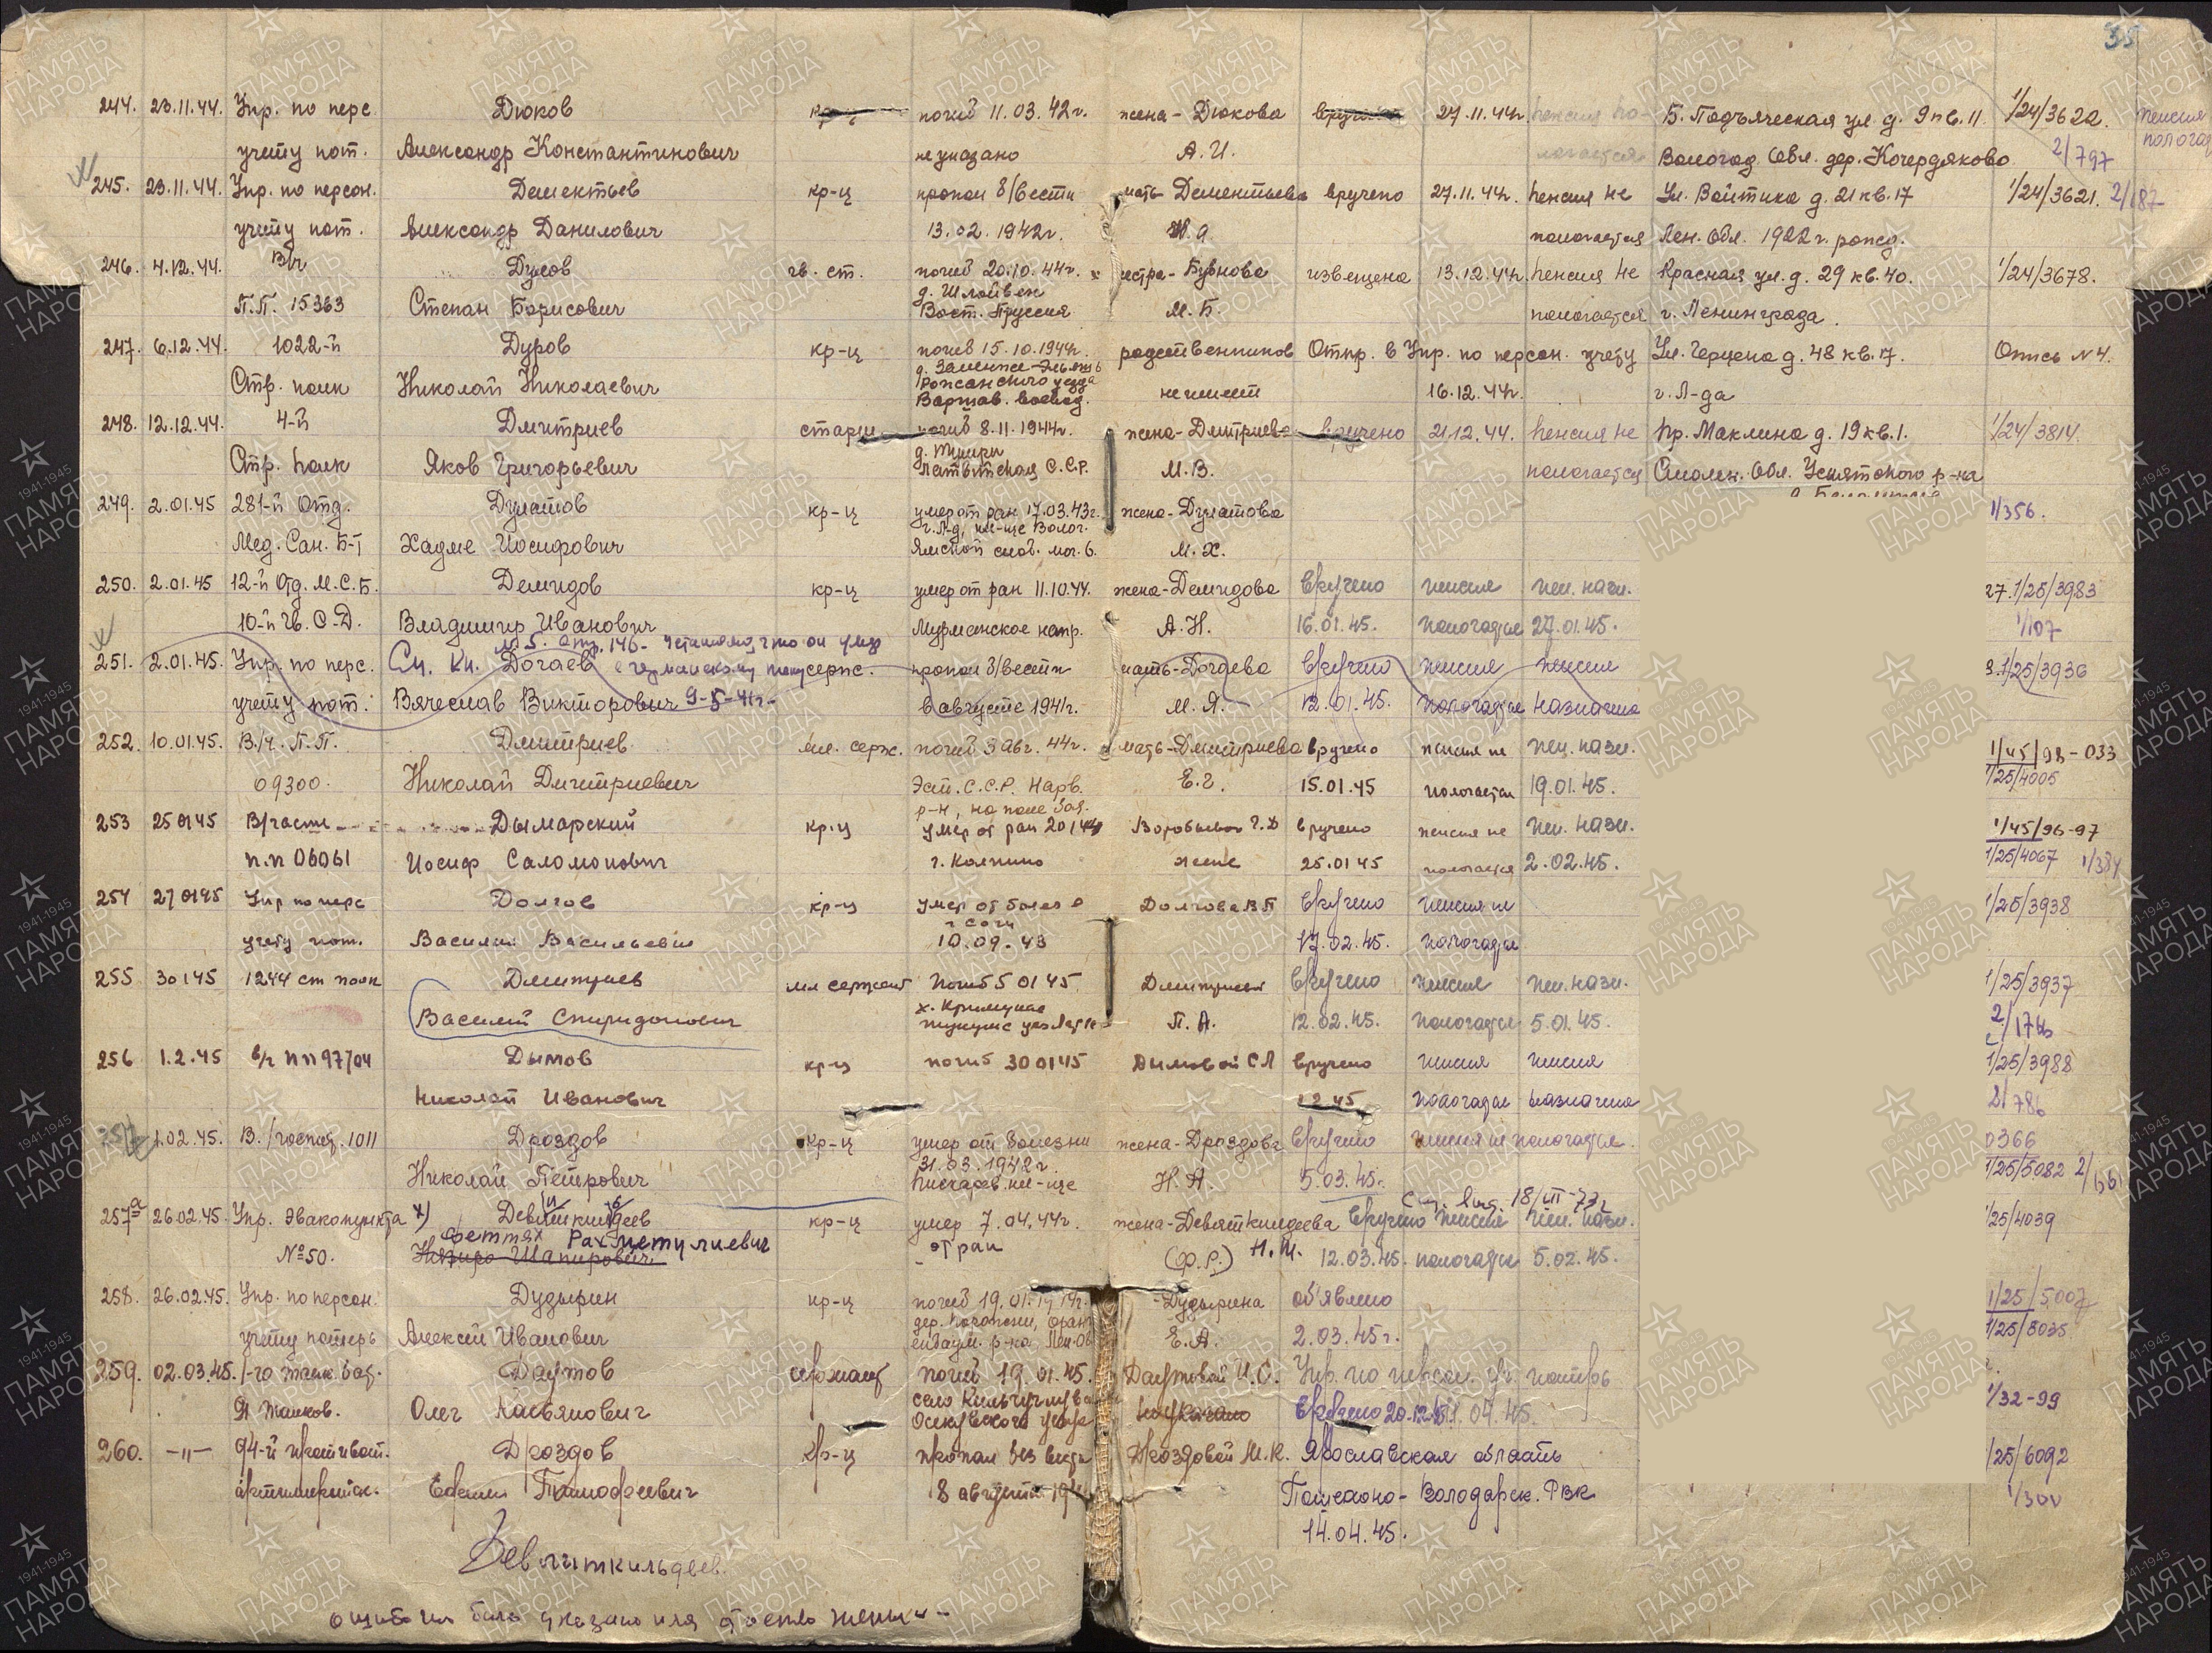 35
244. 23.11.44. Упр. по перс. Дюков кр-ц погиб 11.03.42г. жена - Дюкова вручено 27.11.44г. пенсия по- Б. Подъяческая ул. д. 9 кв. 11 1/24/3622. пенсия
учету пот. Александр Константинович не указано А.И. логается Вологод. обл. дер. Кочердяково 2/797
245. 23.11.44. Упр. по персон. Дементьев кр-ц пропал б/вести мать - Дементьева вручено 27.11.44г. пенсия не Ул. Войтика д. 21 кв. 17 1/24/3621. 2/187
учету пот. Александр Данилович 13.02.1942г. пологается Лен. Обл. 1922 г. рожд.
246. 4.12.44. В/ч Дусов гв. ст. погиб 20.10.44г. сестра - извещена 13.12.44г. пенсия не Красная ул. д. 29 кв. 40. 1/24/3678.
П.П. 15363 Степан Борисович Вост. Пруссия М.Б. пологается г. Ленинграда.
247. 6.12.44. 1022-й Дуров кр-ц погиб 15.10.1944г. родственников Отпр. в Упр. по персон. учету Ул. Герцена д. 48 кв. 17. Опись №4.
Стр. полк Николай Николаевич Рожанского уезда Варшав. воевод. не имеет 16.12.44г. г. Л-да
248. 12.12.44. 4-й Дмитриев старш погиб 8.11.1944г. жена - Дмитриева вручено 21.12.44. пенсия не пр. Маклина д. 19 кв. 1. 1/24/3814.
Стр. полк Яков Григорьевич Латвитская С.С.Р. М.В. пологается Смолен. Обл. Усвятского р-на
249. 2.01.45 281-й Отд. Дулатов кр-ц умер от ран 17.03.43г. жена - Дулатова 1/356.
Мед. Сан. Б-т Хадме Иосифович Ямской слоб. мог. 6. М.Х.
250. 2.01.45 12-й Отд. М.С.Б. Демидов кр-ц умер от ран 11.10.44. жена - Демидова вручено пенсия пен. назн. 27.1/25/3983
10-й Гв. С.Д. Владимир Иванович Мурманское напр. А.Н. 16.01.45. пологается 27.01.45. 1/107
№5. стр. 146 - установлено, что он умер
251. 2.01.45. Упр. по перс. См. кн. Догаев сержс. пропал б/вести мать - Догаева вручено пенсия пенсия 3.1/25/3936
учету пот. Вячеслав Викторович 9-5-41г. в августе 1941г. М.Я. 12.01.45. пологается назначена
252. 10.01.45. В/ч. П.П. Дмитриев мл. серж. погиб 3 авг. 44г. мать - Дмитриева вручено пенсия не пен. назн. 1/45/98-033
09300. Николай Дмитриевич Эст. С.С.Р. Нарв. р-н, Е.Г. 15.01.45 пологается 19.01.45. 1/25/4005
253 25 01 45 В/части Дымарский кр-ц умер от ран вручено пенсия не пен. назн. 1/45/96-97
п.п 06061 Иосиф Саломонович г. Колпино жене 25.01 45 пологается 2.02.45. 1/25/4067
254 27 01 45 Упр по перс Долгов кр-ц Долгова В П вручено пенсия не 1/25/3938
учету пот. Василий Васильевич 10.09.43 17.02.45. пологается
255 30 1 45 1244 ст полк Дмитриев мл сержант погиб 5 01 45 вручено пенсия пен. назн. 1/25/3937
Василий Спиридонович П.А. 12.02.45. пологается 5.01.45. 2/1766
256 1.2.45 в/ч пп 97704 Дымов кр-ц погиб 30 01 45 Дымовой С Л вручено пенсия пенсия 1/25/3988
Николай Иванович 1 2 45 пологается назначена 2/786
1.02.45. В./госпит. 1011 Дроздов кр-ц умер от болезни жена - Дроздова вручено пенсия не пологается. 0366
Николай Петрович 31.03.1942г. Пискарев. кл-ще Н.А. 5.03.45. 1/25/5082
257а 26.02.45. Упр. Эвакопункта х) Девяткильдеев кр-ц умер 7.04.44г. жена - Девяткилдеева вручено пенсия пен. назн. 1/25/4039
№50. Феттях Рахметулиевич от ран (Ф.Р.) Н.Ш. 12.03.45. пологается 5.02.45.
258. 26.02.45. Упр. по персон. Дудырин кр-ц - Дудырина об'явлено 1/25/5007
учету потерь Алексей Иванович Е.А. 2.03.45г. 1/25/8035
259. 02.03.45. 1-го танк. бат. Даутов сержант погиб 19.01.45. Даутовой И.С. Упр. по персон. уч. потерь
Я танков. Олег Касьянович не указано вручено 1/32-99
260. -"- 94-й Дроздов кр-ц пропал без вести Дроздовой М.К. Ярославская область 1/25/6092
Тимофеевич 8 августа Пошехоно-Володарск. РВК 1/300
14.04.45.
Девяткильдеев.
ошибочно было указано имя отчество жены -